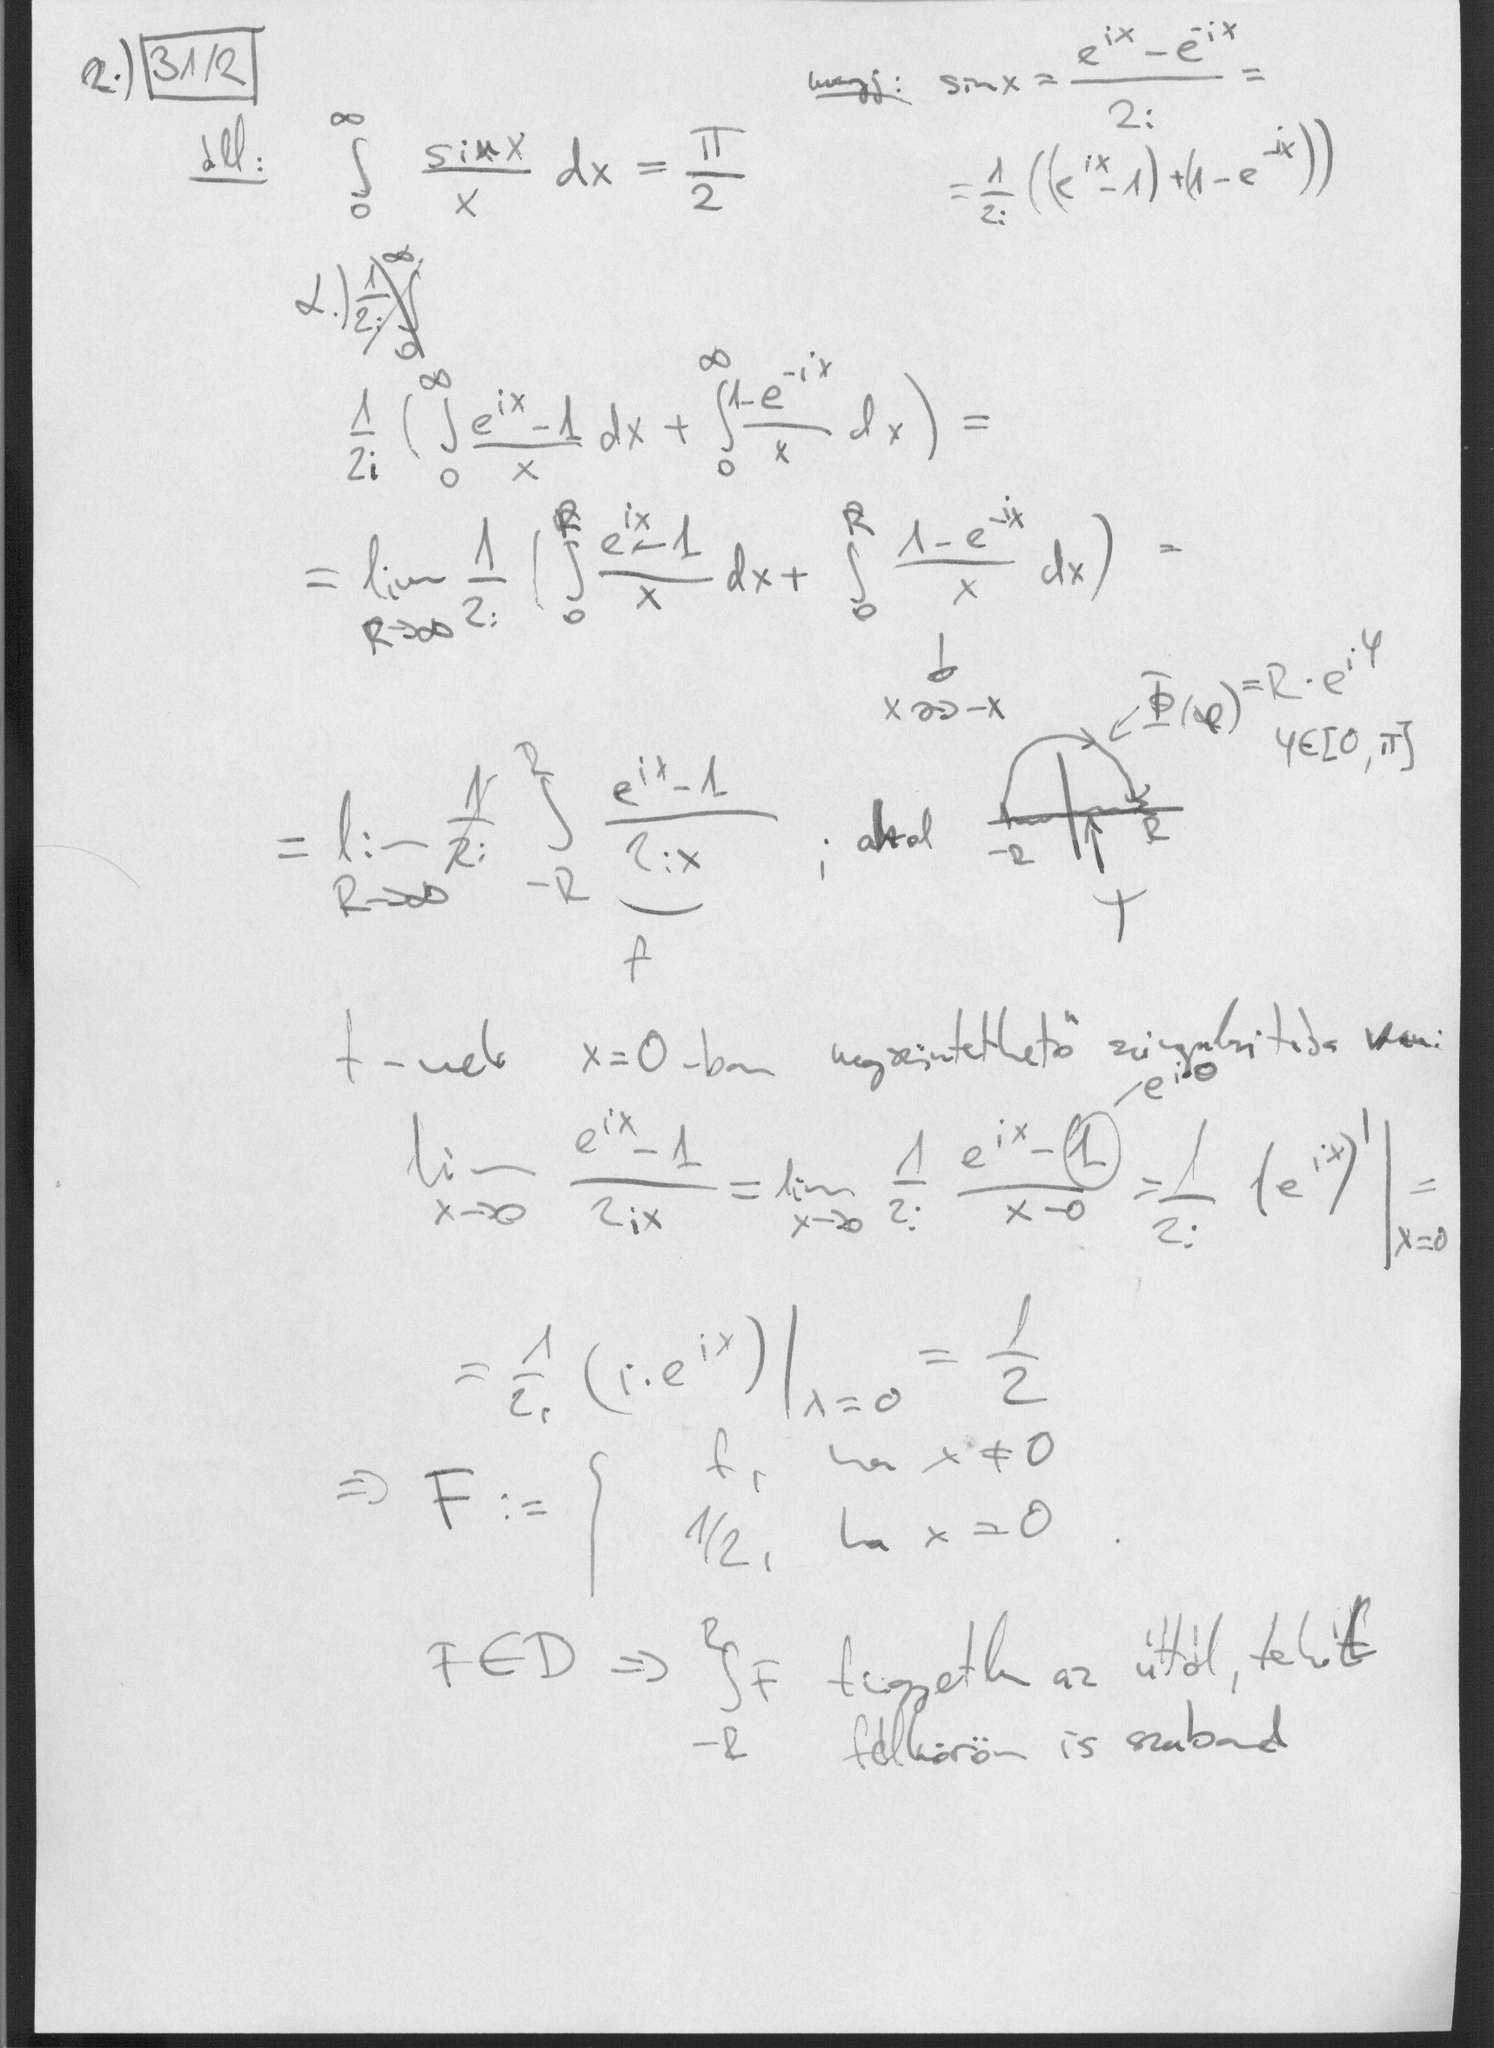 2.) 31/2
áll: ∫₀^∞ sin x / x dx = π/2
megj: sin x = (e^{ix} − e^{-ix}) / 2i =
= 1/2i ((e^{ix} − 1) + (1 − e^{-ix}))
α.)
1/2i ( ∫₀^∞ (e^{ix} − 1)/x dx + ∫₀^∞ (1 − e^{-ix})/x dx ) =
= lim_{R→∞} 1/2i ( ∫₀^R (e^{ix} − 1)/x dx + ∫₀^R (1 − e^{-ix})/x dx ) =
x → −x
Φ(φ) = R · e^{iφ}
φ ∈ [0, π]
= lim_{R→∞} ∫_{-R}^R (e^{ix} − 1)/2ix ; ahol
−R R
f
f-nek x=0-ban megszüntethető szingularitása van:
e^{i·0}
lim_{x→0} (e^{ix} − 1)/2ix = lim_{x→0} 1/2i (e^{ix} − 1)/(x − 0) = 1/2i (e^{ix})' |_{x=0} =
= 1/2i (i · e^{ix}) |_{x=0} = 1/2
⇒ F := { f, ha x ≠ 0
1/2, ha x = 0 .
F ∈ D ⇒ ∫_{-R}^R F független az úttól, tehát
félkörön is szabad